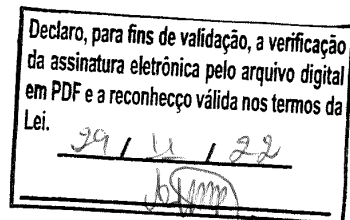 Declaro, para fins de validação, a verificação
da assinatura eletrônica pelo arquivo digital
em PDF e a reconhecço válida nos termos da
Lei.
29 / 11 / 22